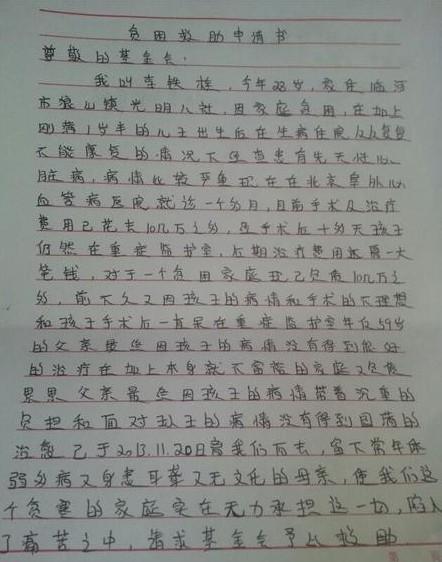 贫困救助申请书
尊敬的基金会：
我叫李铁栓，今年28岁，家住临河
市狼山镇光明八社，因家庭贫困，在加上
刚满1岁半的儿子出生后在生病住院反反复复
不能康复的情况下经查患有先天性心
脏病，病情比较严重现在在北京阜外心
血管病医院就诊一个多月，目前手术及治疗
费用已花去10几万之多，且手术后十多天孩子
仍然在重症监护室，后期治疗费用还需一大
笔钱，对于一个贫困家庭现已负债10几万之
多，前不久又因孩子的病情和手术的不理想
和孩子手术后一直呆在重症监护室年仅59岁
的父亲最终因孩子的病情没有得到很好
的治疗在加上本身就不富裕的家庭又负债
累累父亲最终因孩子的病情带着沉重的
负担和面对孩子的病情没有得到圆满的
治愈已于2013.11.20日离我们而去，留下常年体
弱多病又身患耳聋又无文化的母亲，使我们这
个负债的家庭实在无力承担这一切，陷入
了痛苦之中，请求基金会予以救助